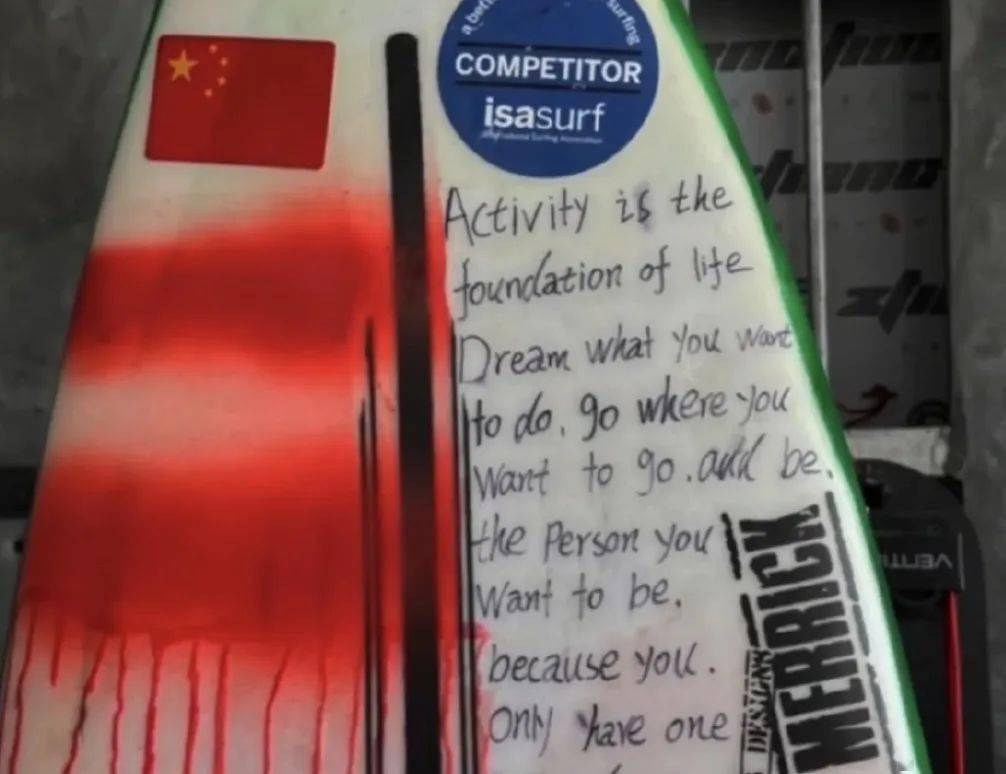 surfing
COMPETITOR
isasurf
Activity is the
foundation of life
Dream what you want
to do. go where you
want to go. and be.
the Person you
want to be.
because you.
Only have one
DESIGNS
MERRICK